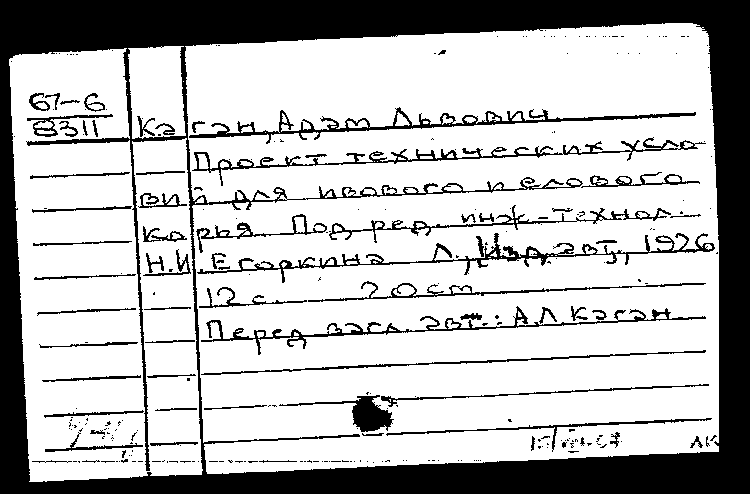 67-6
8311
Каган, Адам Львович.
Проект технических усло-
вий для ивового и елового
корья. Под ред. инж.-технол.
Н.И. Егоркина. Л., Изд. авт., 1926
12 с. 20 cm.
Перед загл. авт.: А.Л. Каган.
АК